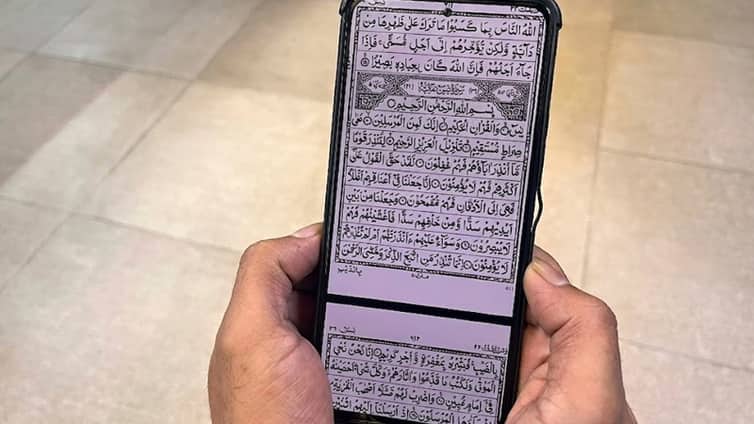 اللهُ النَّاسَ بِمَا كَسَبُوْا مَا تَرَكَ عَلٰى ظَهْرِهَا مِنْ
دَآبَّةٍ وَّلٰكِنْ يُّؤَخِّرُهُمْ اِلٰٓى اَجَلٍ مُّسَمًّى ۚ فَاِذَا
جَآءَ اَجَلُهُمْ فَاِنَّ اللهَ كَانَ بِعِبَادِهٖ بَصِيْرًا
بِسْمِ اللهِ الرَّحْمٰنِ الرَّحِيْمِ
يٰسٓ وَالْقُرْاٰنِ الْحَكِيْمِ اِنَّكَ لَمِنَ الْمُرْسَلِيْنَ عَلٰى
صِرَاطٍ مُّسْتَقِيْمٍ تَنْزِيْلَ الْعَزِيْزِ الرَّحِيْمِ لِتُنْذِرَ قَوْمًا
مَّآ اُنْذِرَ اٰبَآؤُهُمْ فَهُمْ غٰفِلُوْنَ لَقَدْ حَقَّ الْقَوْلُ عَلٰٓى
اَكْثَرِهِمْ فَهُمْ لَا يُؤْمِنُوْنَ اِنَّا جَعَلْنَا فِيْٓ اَعْنَاقِهِمْ اَغْلٰلًا
فَهِيَ اِلَى الْاَذْقَانِ فَهُمْ مُّقْمَحُوْنَ وَجَعَلْنَا مِنْۢ بَيْنِ
اَيْدِيْهِمْ سَدًّا وَّمِنْ خَلْفِهِمْ سَدًّا فَاَغْشَيْنٰهُمْ فَهُمْ
لَا يُبْصِرُوْنَ وَسَوَآءٌ عَلَيْهِمْ ءَاَنْذَرْتَهُمْ اَمْ لَمْ تُنْذِرْهُمْ
لَا يُؤْمِنُوْنَ اِنَّمَا تُنْذِرُ مَنِ اتَّبَعَ الذِّكْرَ وَخَشِيَ الرَّحْمٰنَ
بالغيب
بِالْغَيْبِ فَبَشِّرْهُ بِمَغْفِرَةٍ وَّاَجْرٍ كَرِيْمٍ اِنَّا نَحْنُ نُحْيِ
الْمَوْتٰى وَنَكْتُبُ مَا قَدَّمُوْا وَاٰثَارَهُمْ وَكُلَّ شَيْءٍ اَحْصَيْنٰهُ
فِيْٓ اِمَامٍ مُّبِيْنٍ وَاضْرِبْ لَهُمْ مَّثَلًا اَصْحٰبَ الْقَرْيَةِ
اِذْ جَآءَهَا الْمُرْسَلُوْنَ اِذْ اَرْسَلْنَآ اِلَيْهِمُ اثْنَيْنِ